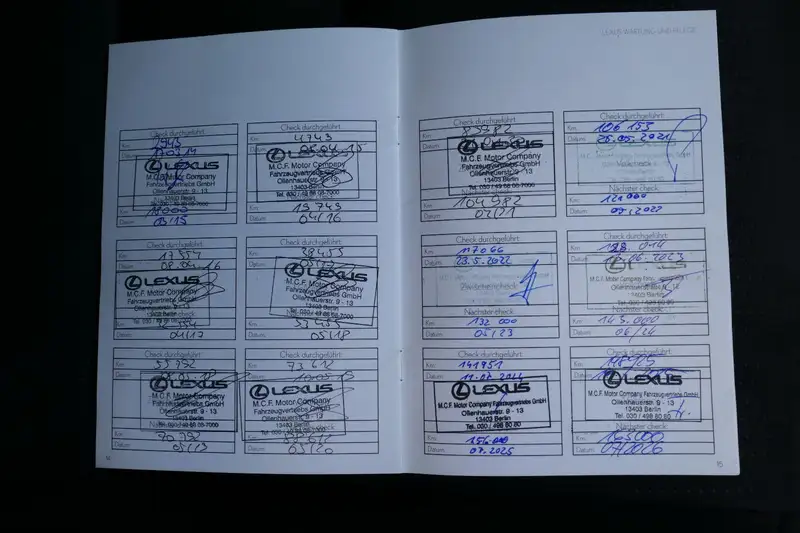 LEXUS WARTUNG UND PFLEGE
Check durchgeführt:
Km: 2943
Datum: 17.03.14
LEXUS
M.C.F. Motor Company
Fahrzeugvertriebs GmbH
Ollenhauerstr. 9 - 13
13403 Berlin
Tel. 030 / 49 88 08-7000
Km:
Datum: 03/15
Check durchgeführt:
Km: 4743
Datum:
LEXUS
M.C.F. Motor Company
Fahrzeugvertriebs GmbH
Ollenhauerstr. 9 - 13
13403 Berlin
Tel. 030 / 49 88 08-7000
Km: 19743
Datum: 04/16
Check durchgeführt:
Km: 17554
Datum: 08.04.16
LEXUS
M.C.F. Motor Company
Fahrzeugvertriebs GmbH
Ollenhauerstr. 9 - 13
13403 Berlin
Datum: 04/17
Check durchgeführt:
Km: 38455
Datum: 05/17
LEXUS
M.C.F. Motor Company
Fahrzeugvertriebs GmbH
Ollenhauerstr. 9 - 13
13403 Berlin
Tel. 030 / 49 88 08-7000
Km: 53455
Datum: 05/18
Check durchgeführt:
Km: 55792
Datum:
LEXUS
M.C.F. Motor Company
Fahrzeugvertriebs GmbH
Ollenhauerstr. 9 - 13
13403 Berlin
Tel. 030 / 49 88 08-7000
Km: 70792
Datum: 05/19
Check durchgeführt:
Km: 73612
Datum:
LEXUS
M.C.F. Motor Company
Fahrzeugvertriebs GmbH
Ollenhauerstr. 9 - 13
13403 Berlin
Km: 88612
Datum: 05/20
14
Check durchgeführt:
Km: 89982
Datum:
LEXUS
M.C.F. Motor Company
Fahrzeugvertriebs GmbH
Ollenhauerstr. 9 - 13
13403 Berlin
Tel. 030 / 49 88 08-7000
Km: 104982
Datum: 02/21
Check durchgeführt:
Km: 106 153
Datum: 25.05.2021
Nächster check:
Km: 121 000
Datum: 05.2022
Check durchgeführt:
Km: 117066
Datum: 23.5.2022
Zwischencheck:
Nächster check:
Km: 132 000
Datum: 05/23
Check durchgeführt:
Km: 128.014
Datum: 06.2023
LEXUS
M.C.F. Motor Company
Ollenhauerstr. 9 - 13
13403 Berlin
Nächster check:
Km: 143.000
Datum: 06/24
Check durchgeführt:
Km: 141951
Datum:
LEXUS
M.C.F. Motor Company Fahrzeugvertriebs GmbH
Ollenhauerstr. 9 - 13
13403 Berlin
Tel. 030 / 498 80 80
Km: 156.000
Datum: 07.2025
Check durchgeführt:
Km:
Datum:
LEXUS
M.C.F. Motor Company Fahrzeugvertriebs GmbH
Ollenhauerstr. 9 - 13
13403 Berlin
Tel. 030 / 498 80 80
Nächster check:
Km: 163000
Datum: 07/2026
15